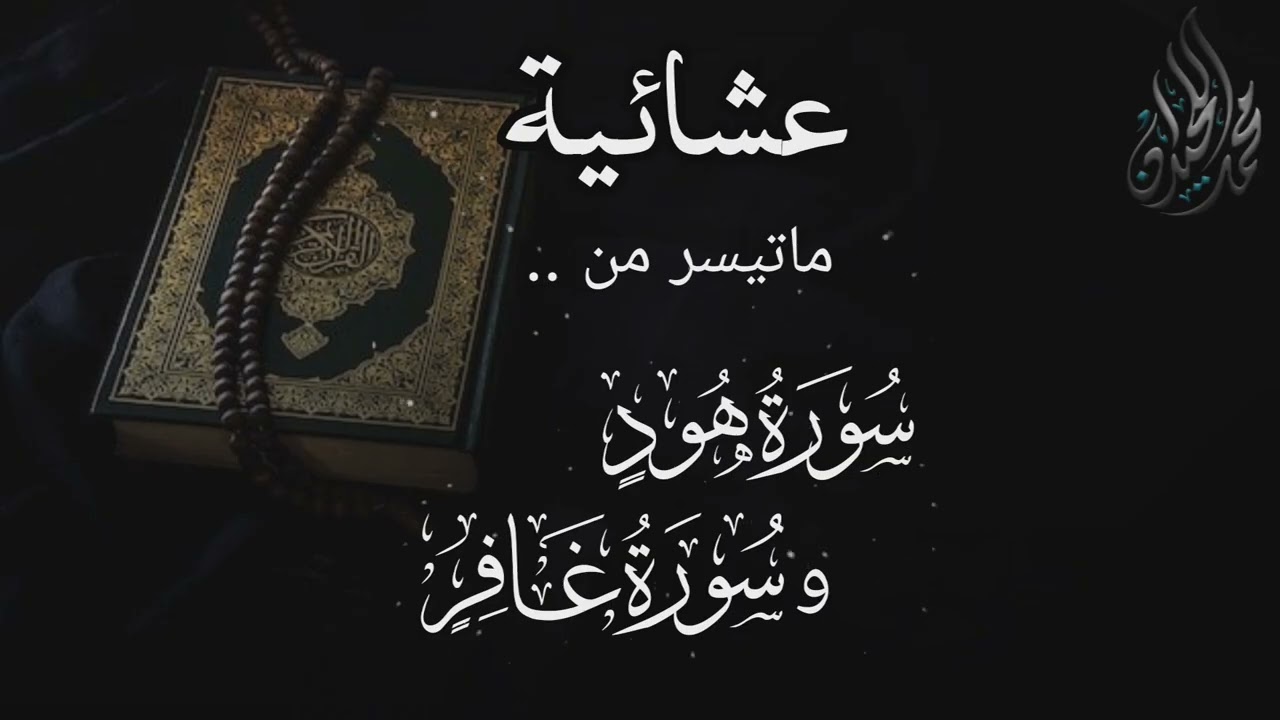 عشائية
ماتيسر من ..
سُورَةُ هُودٍ
و سُورَةُ غَافِرٍ
محمد اللحيدان